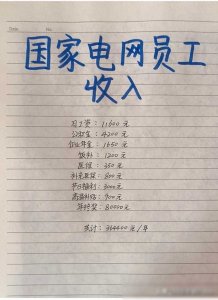 Date.    No.
国家电网员工
收入
月工资：11600元
公积金：4200元
企业年金：1650元
饭补：1200元
医保：350元
补充医保：800元
节日福利：3000元
高温补贴：900元
年终奖：80000元
共计：364400元/年